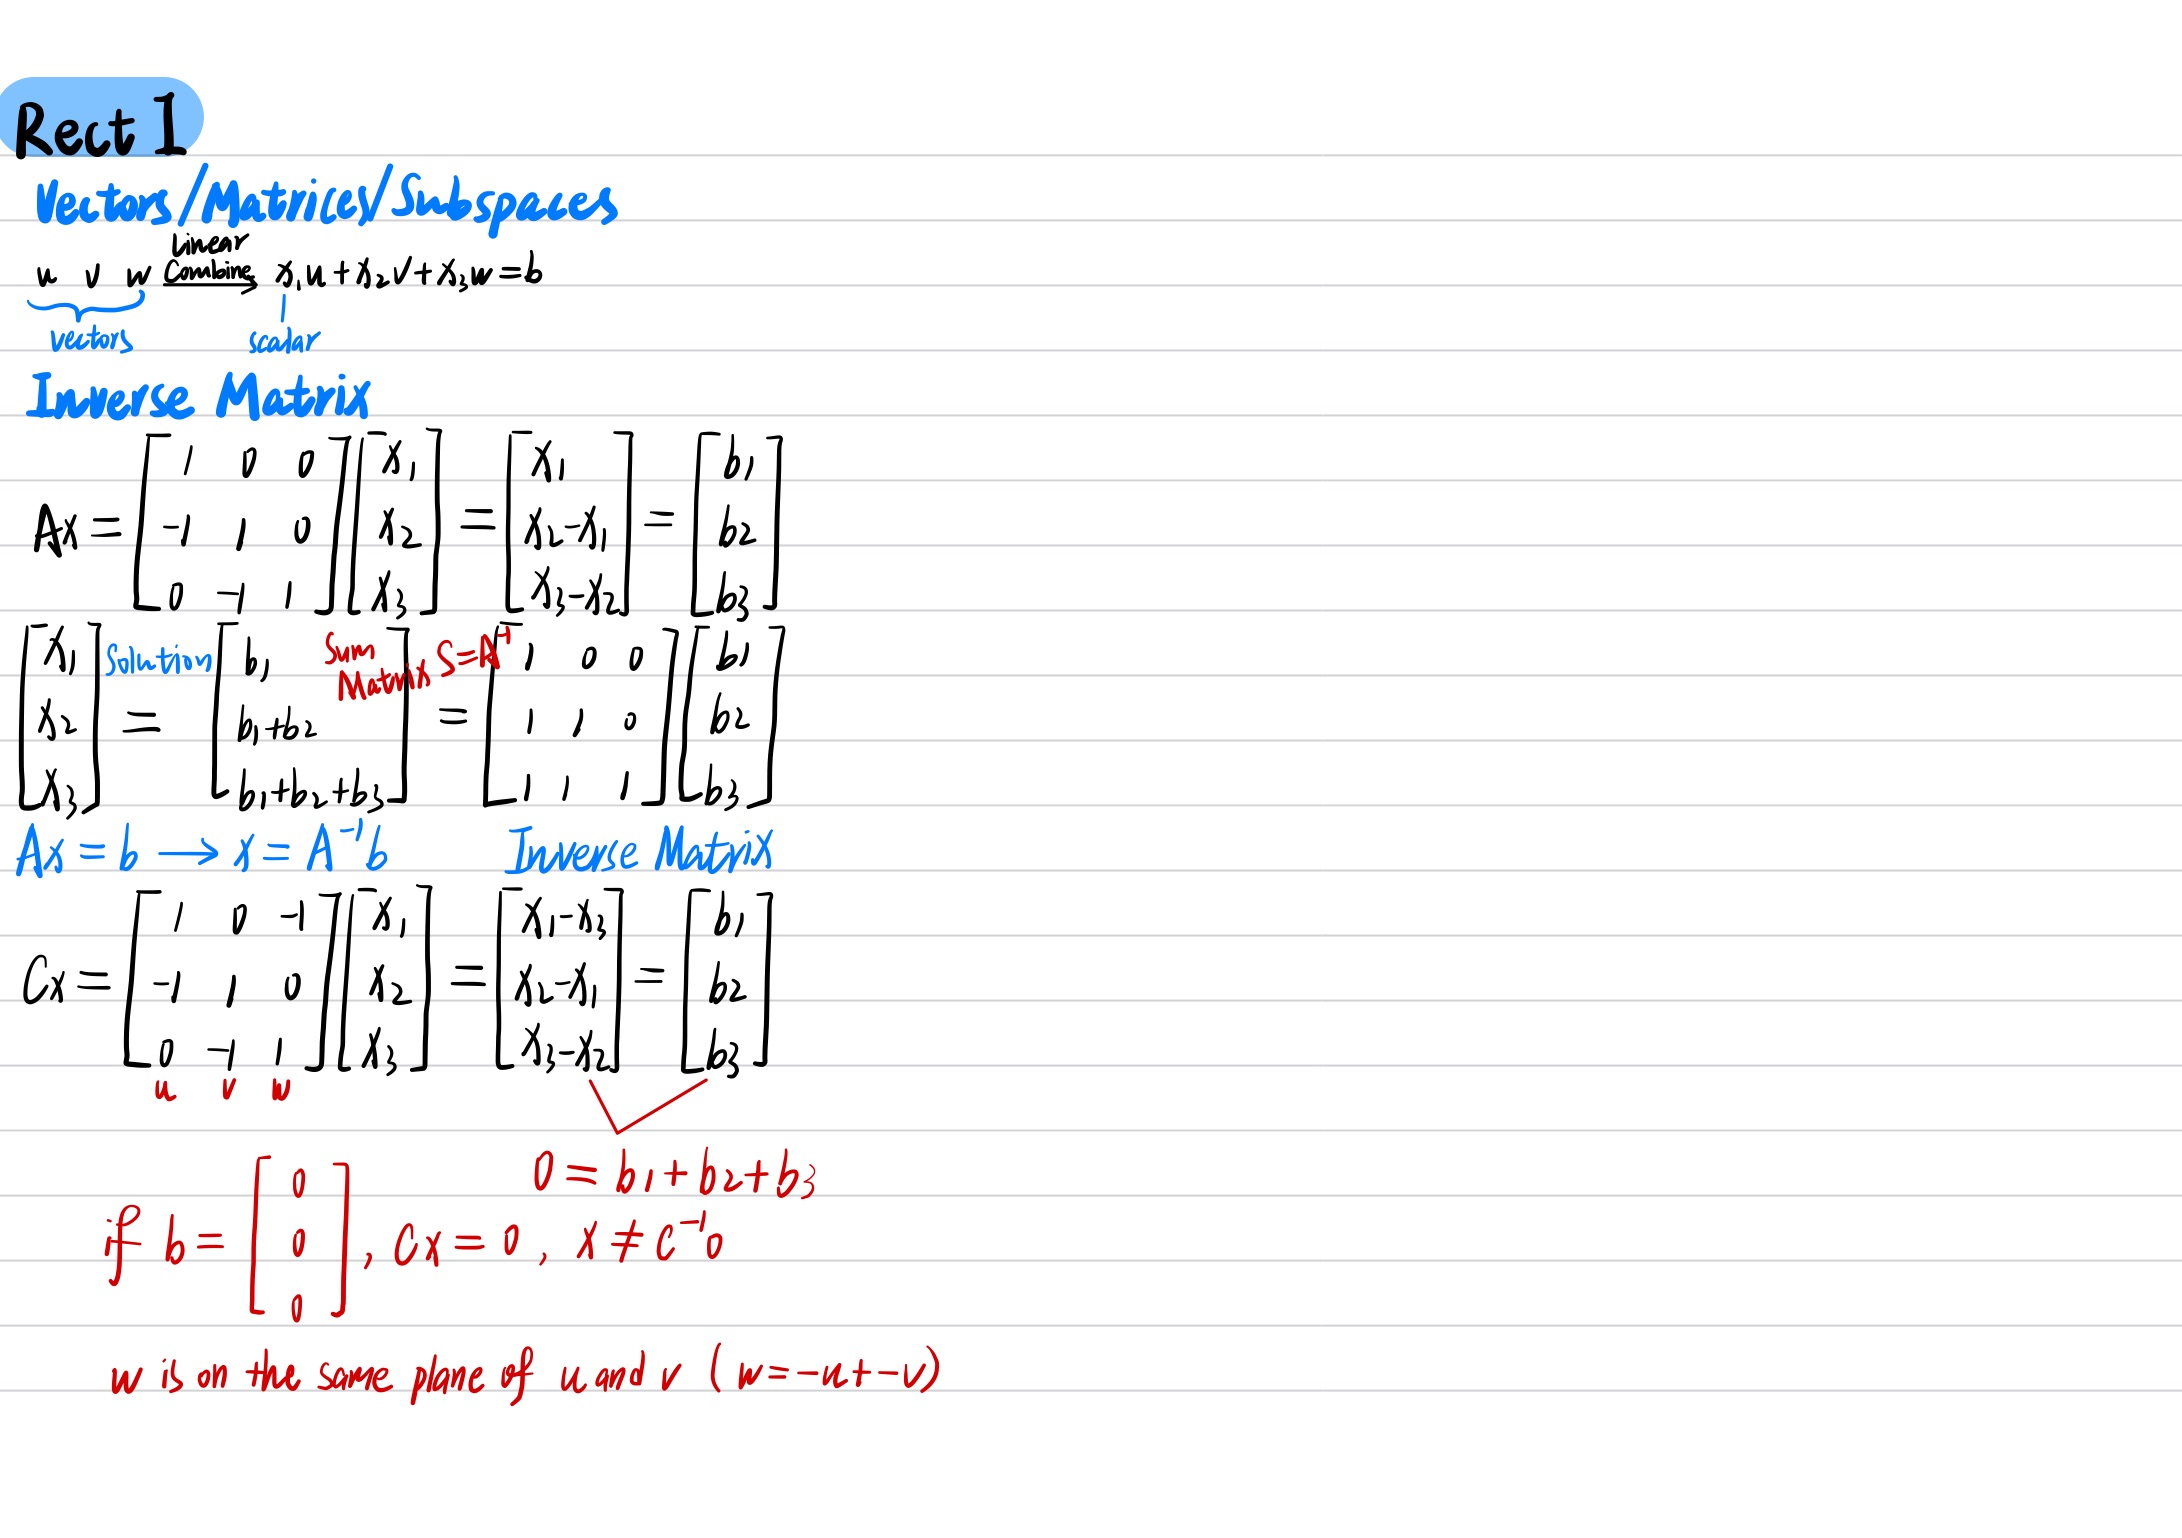 Rect 1
Vectors/Matrices/Subspaces
u v w Linear Combine x₁u+x₂v+x₃w=b
vectors scalar
Inverse Matrix
Ax = [1 0 0; -1 1 0; 0 -1 1] [x₁; x₂; x₃] = [x₁; x₂-x₁; x₃-x₂] = [b₁; b₂; b₃]
[x₁; x₂; x₃] Solution = [b₁; b₁+b₂; b₁+b₂+b₃] Sum Matrix S=A⁻¹ = [1 0 0; 1 1 0; 1 1 1] [b₁; b₂; b₃]
Ax = b → x = A⁻¹b Inverse Matrix
Cx = [1 0 -1; -1 1 0; 0 -1 1] [x₁; x₂; x₃] = [x₁-x₃; x₂-x₁; x₃-x₂] = [b₁; b₂; b₃]
u v w
0 = b₁+b₂+b₃
if b = [0; 0; 0], Cx = 0, x ≠ C⁻¹0
w is on the same plane of u and v (w=-u+-v)